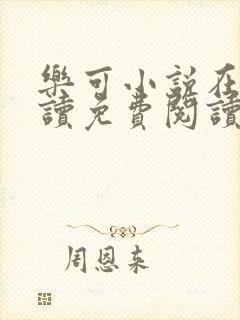 樂可小説在
讀免費閱讀
周恩来